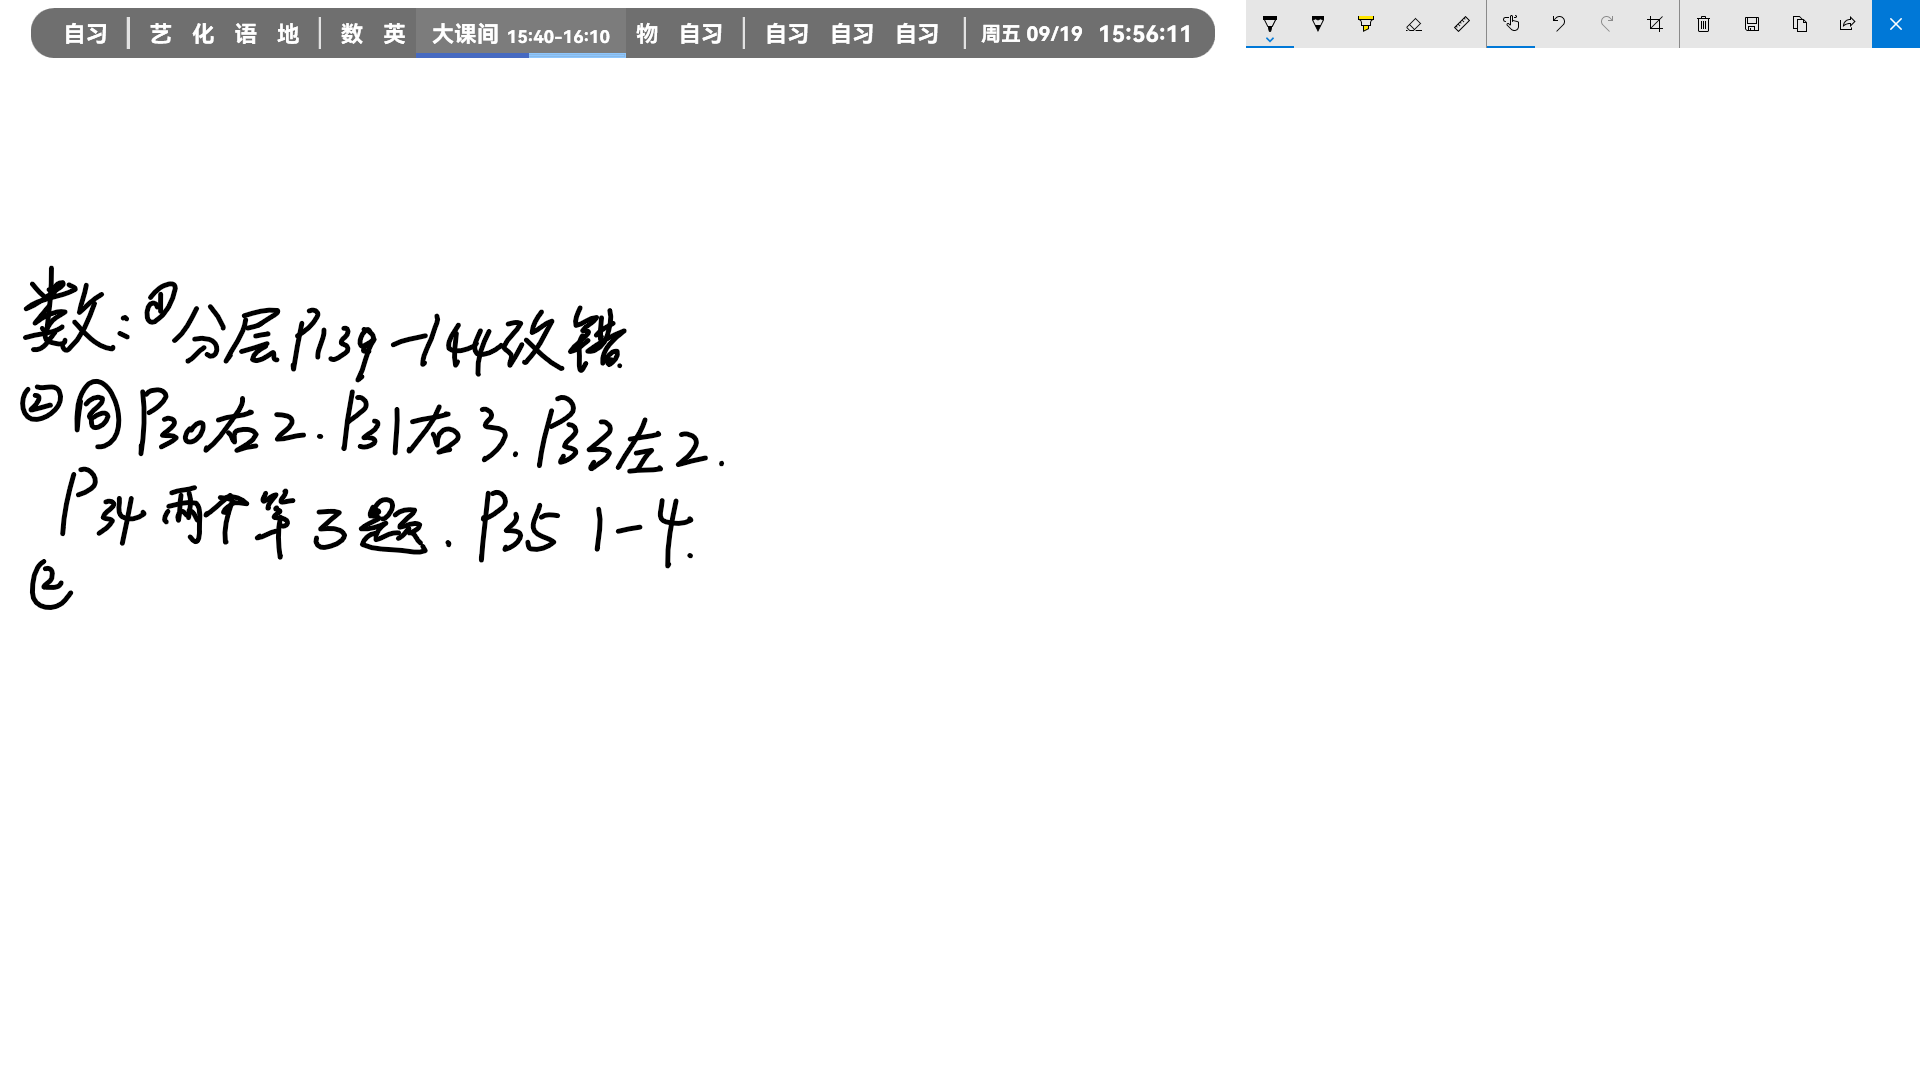 自习 | 艺 化 语 地 | 数 英 大课间 15:40-16:10 物 自习 | 自习 自习 自习 | 周五 09/19 15:56:11
数:①分层P139-144改错.
②同P30右2.P31右3.P33左2.
P34两个第3题.P35 1-4.
②